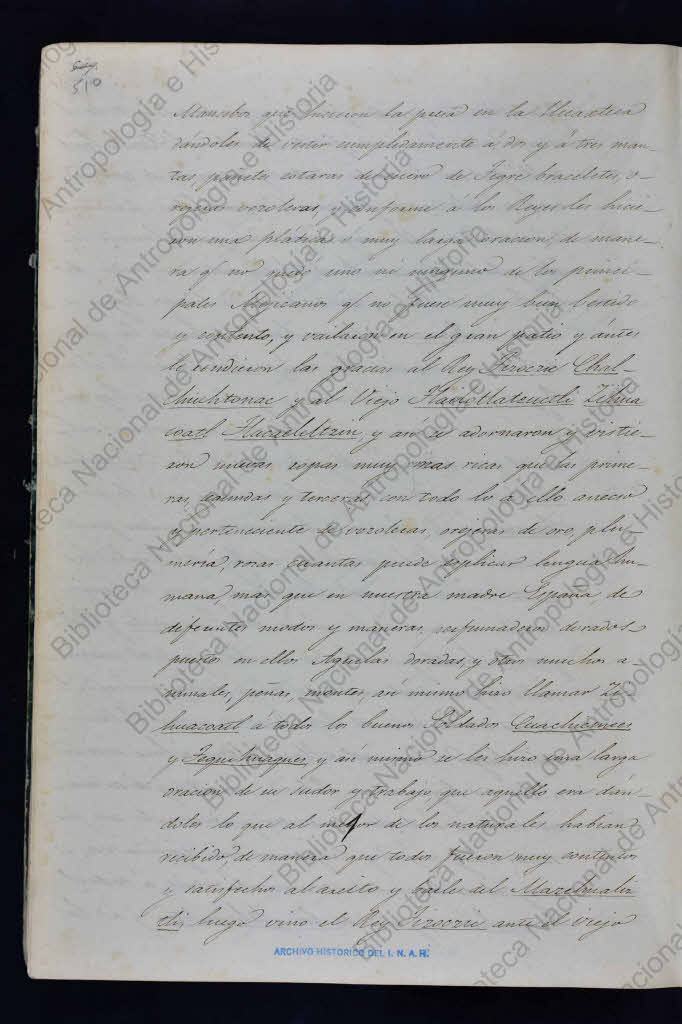 510
Mancebos que hicieron la presa en la Huasteca
dándoles de vestir cumplidamente á dos y á tres man-
tas, pañetes cotaras de cuero de Tigre braceletes, o-
regeras vezoleras, y conforme á los Reyes les hicie-
ron una platica ó muy larga oracion, de mane-
ra qᵉ no quedo uno ni ninguno de los princi-
pales Mejicanos qᵉ no fuese muy bien bestido
y contento, y vailaron en el gran patio y ántes
le rindieron las gracias al Rey Tizoczic Chal-
chiuhtonac y al Viejo Tlailotlateuctli Zihua
coatl Tlacaeleltzin, y asi se adornaron y vistie-
ron nuevas ropas muy mas ricas que las prime-
ras, segundas y terceras, con todo lo á ello anecso
y perteneciente de vezoleras, orejeras de oro, plu-
mería, rosas cuantas puede esplicar lengua hu-
mana, mas que en nuestra madre España, de
diferentes modos y maneras, perfumaderos dorados
puestos en ellos Aguilas doradas, y otros muchos a-
nimales, peñas, montes, así mismo hizo llamar Zi-
huacoatl á todos los buenos Soldados Cuachicmees
y Tequihuaques, y así mismo se les hizo una larga
oracion de su sudor y trabajo que aquello era dán-
doles lo que al mejor de los naturales habian
recibido, de manera que todos fueron muy contentos
y satisfechos al areito y baile del Mazehualiz
tli, luego vino el Rey Tizoczic ante el viejo
ARCHIVO HISTORICO DEL I. N. A. H.
Biblioteca Nacional de Antropología e Historia